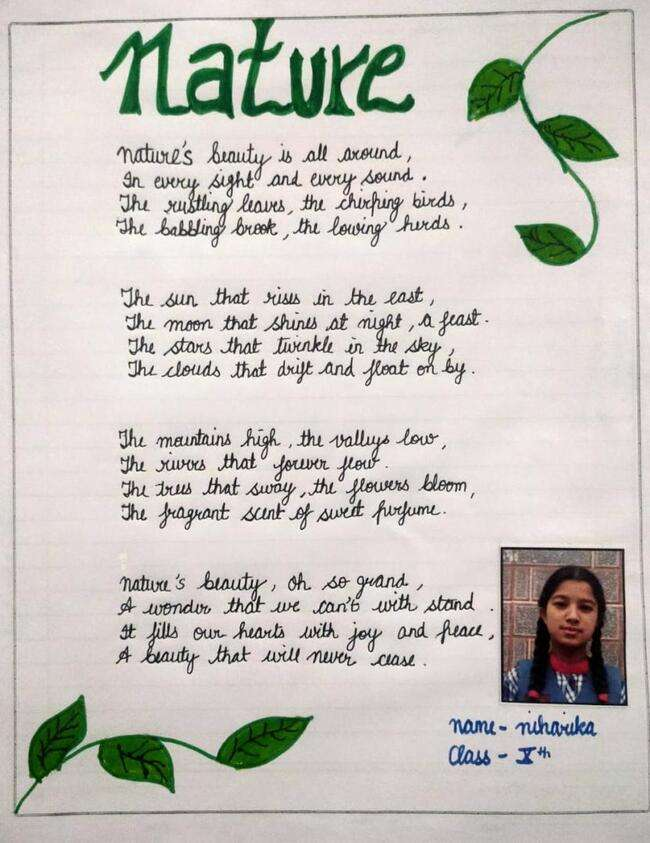 Nature
Nature's beauty is all around,
In every sight and every sound.
The rustling leaves, the chirping birds,
The babbling brook, the lowing herds.
The sun that rises in the east,
The moon that shines at night, a feast.
The stars that twinkle in the sky,
The clouds that drift and float on by.
The mountains high, the valleys low,
The rivers that forever flow.
The trees that sway, the flowers bloom,
The fragrant scent of sweet perfume.
Nature's beauty, oh so grand,
A wonder that we can't with stand.
It fills our hearts with joy and peace,
A beauty that will never cease.
Name - niharika
Class - Xth